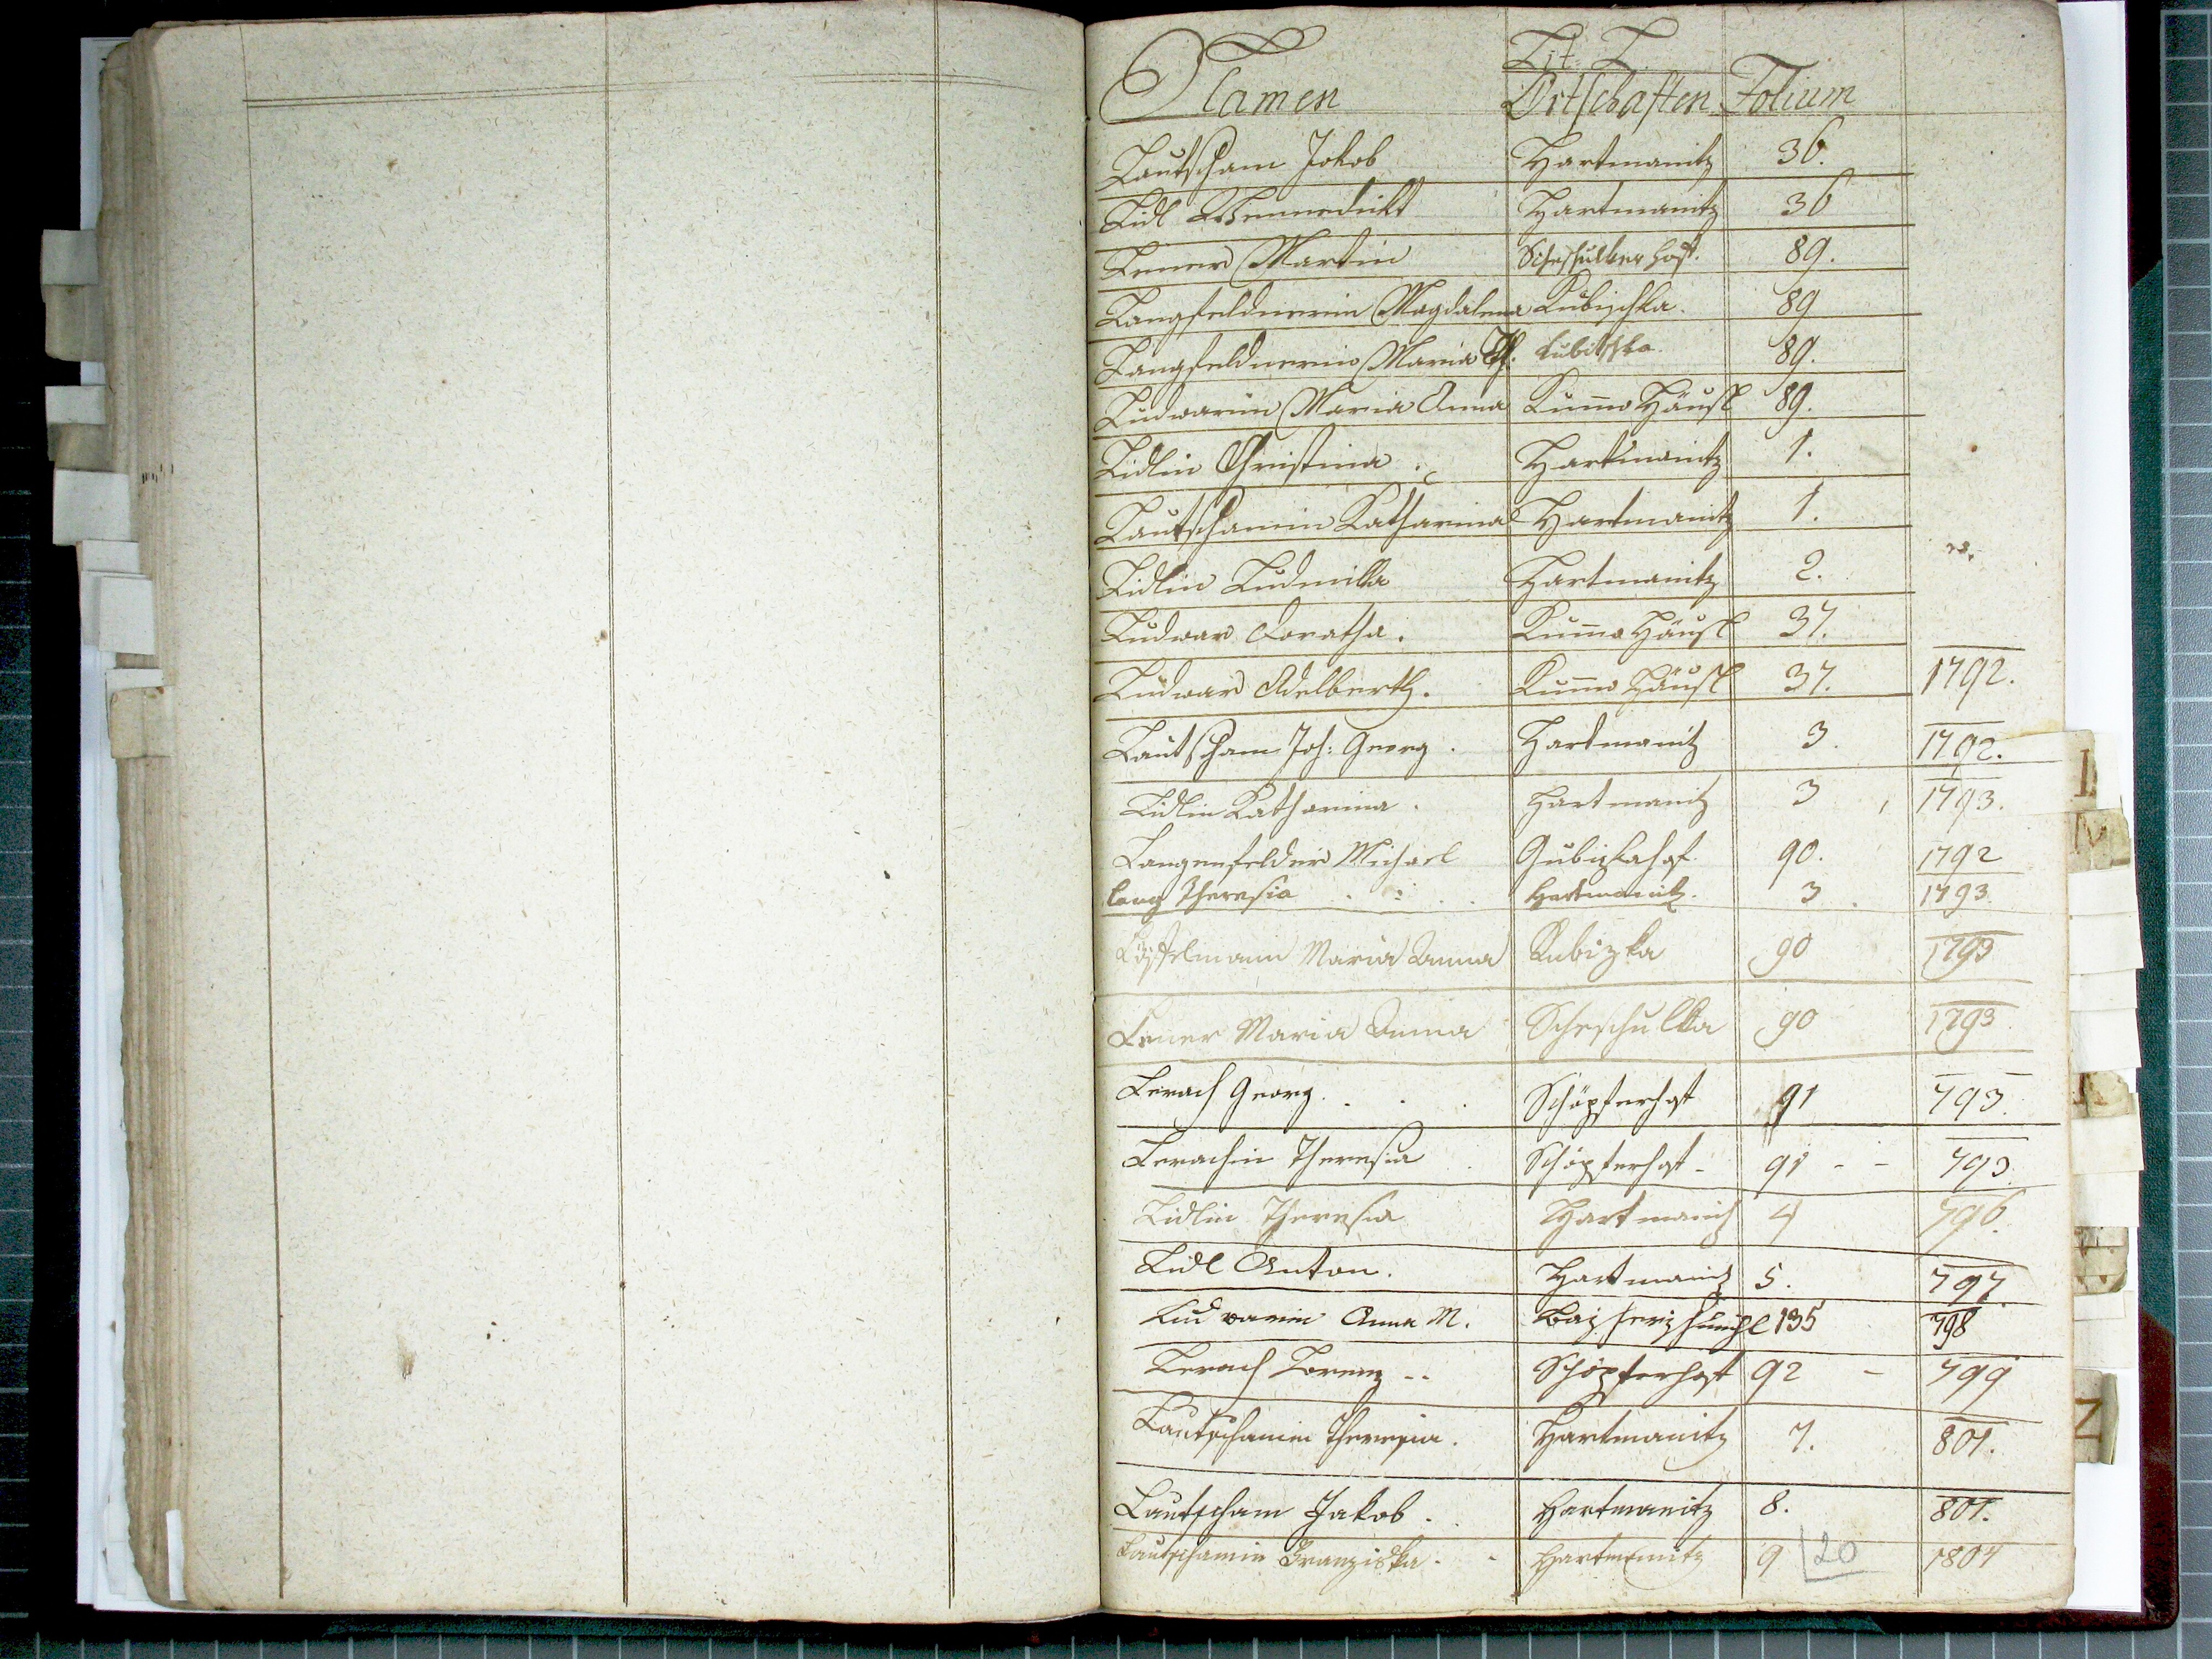 Lit: L.
Namen Ortschaften Folium
Lautscham Jokob Hartmanitz 36.
Lidl Wennedickt Hartmanitz 36
Lener Martin Scheschulkerhof. 89.
Langfeldnerin Magdalena Kubischka. 89
Langfeldnerin Maria Th. Kubitschka. 89.
Ludwarin Maria Anna Kumo Häusl 89.
Lidlin Christina. Hartmanitz 1.
Lautschamin Katharina Hartmanitz 1.
Lidlin Ludmilla Hartmanitz 2.
Ludwar Doratha. Kumo Häusl 37.
Ludwar Adelberth. Kumo Häusl 37. 1792.
Lautscham Joh: Georg. Hartmanitz 3. 1792.
Lidlin Katharina. Hartmanitz 3 1793.
Langenfelder Michael Gubizkahof. 90. 1792
Lang Theresia Hartmanitz. 3. 1793.
Maria Anna Kubizka 90 1793
Lener Maria Anna Scheschulka 90 1793
Lerach Georg. Schöpferhof 91 793.
Lerachin Theresia Schöpferhof - 91 - - 793.
Lidlin Theresia Hartmanitz 4 796.
Lidl Anton. Hartmanitz 5. 797.
Ludwarin Anna M. 135 798
Lerach Lorenz -- Schöpferhof 92 - 799
Lautschamin Theresia. Hartmanitz 7. 801.
Lautscham Jakob. Hartmanitz 8. 801.
Lautschamin Franziska. Hartmanitz 9 20 1804
L
M
Z